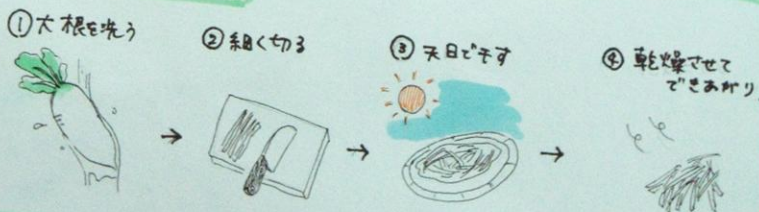 ①大根を洗う
②細く切る
③天日で干す
④乾燥させて
できあがり